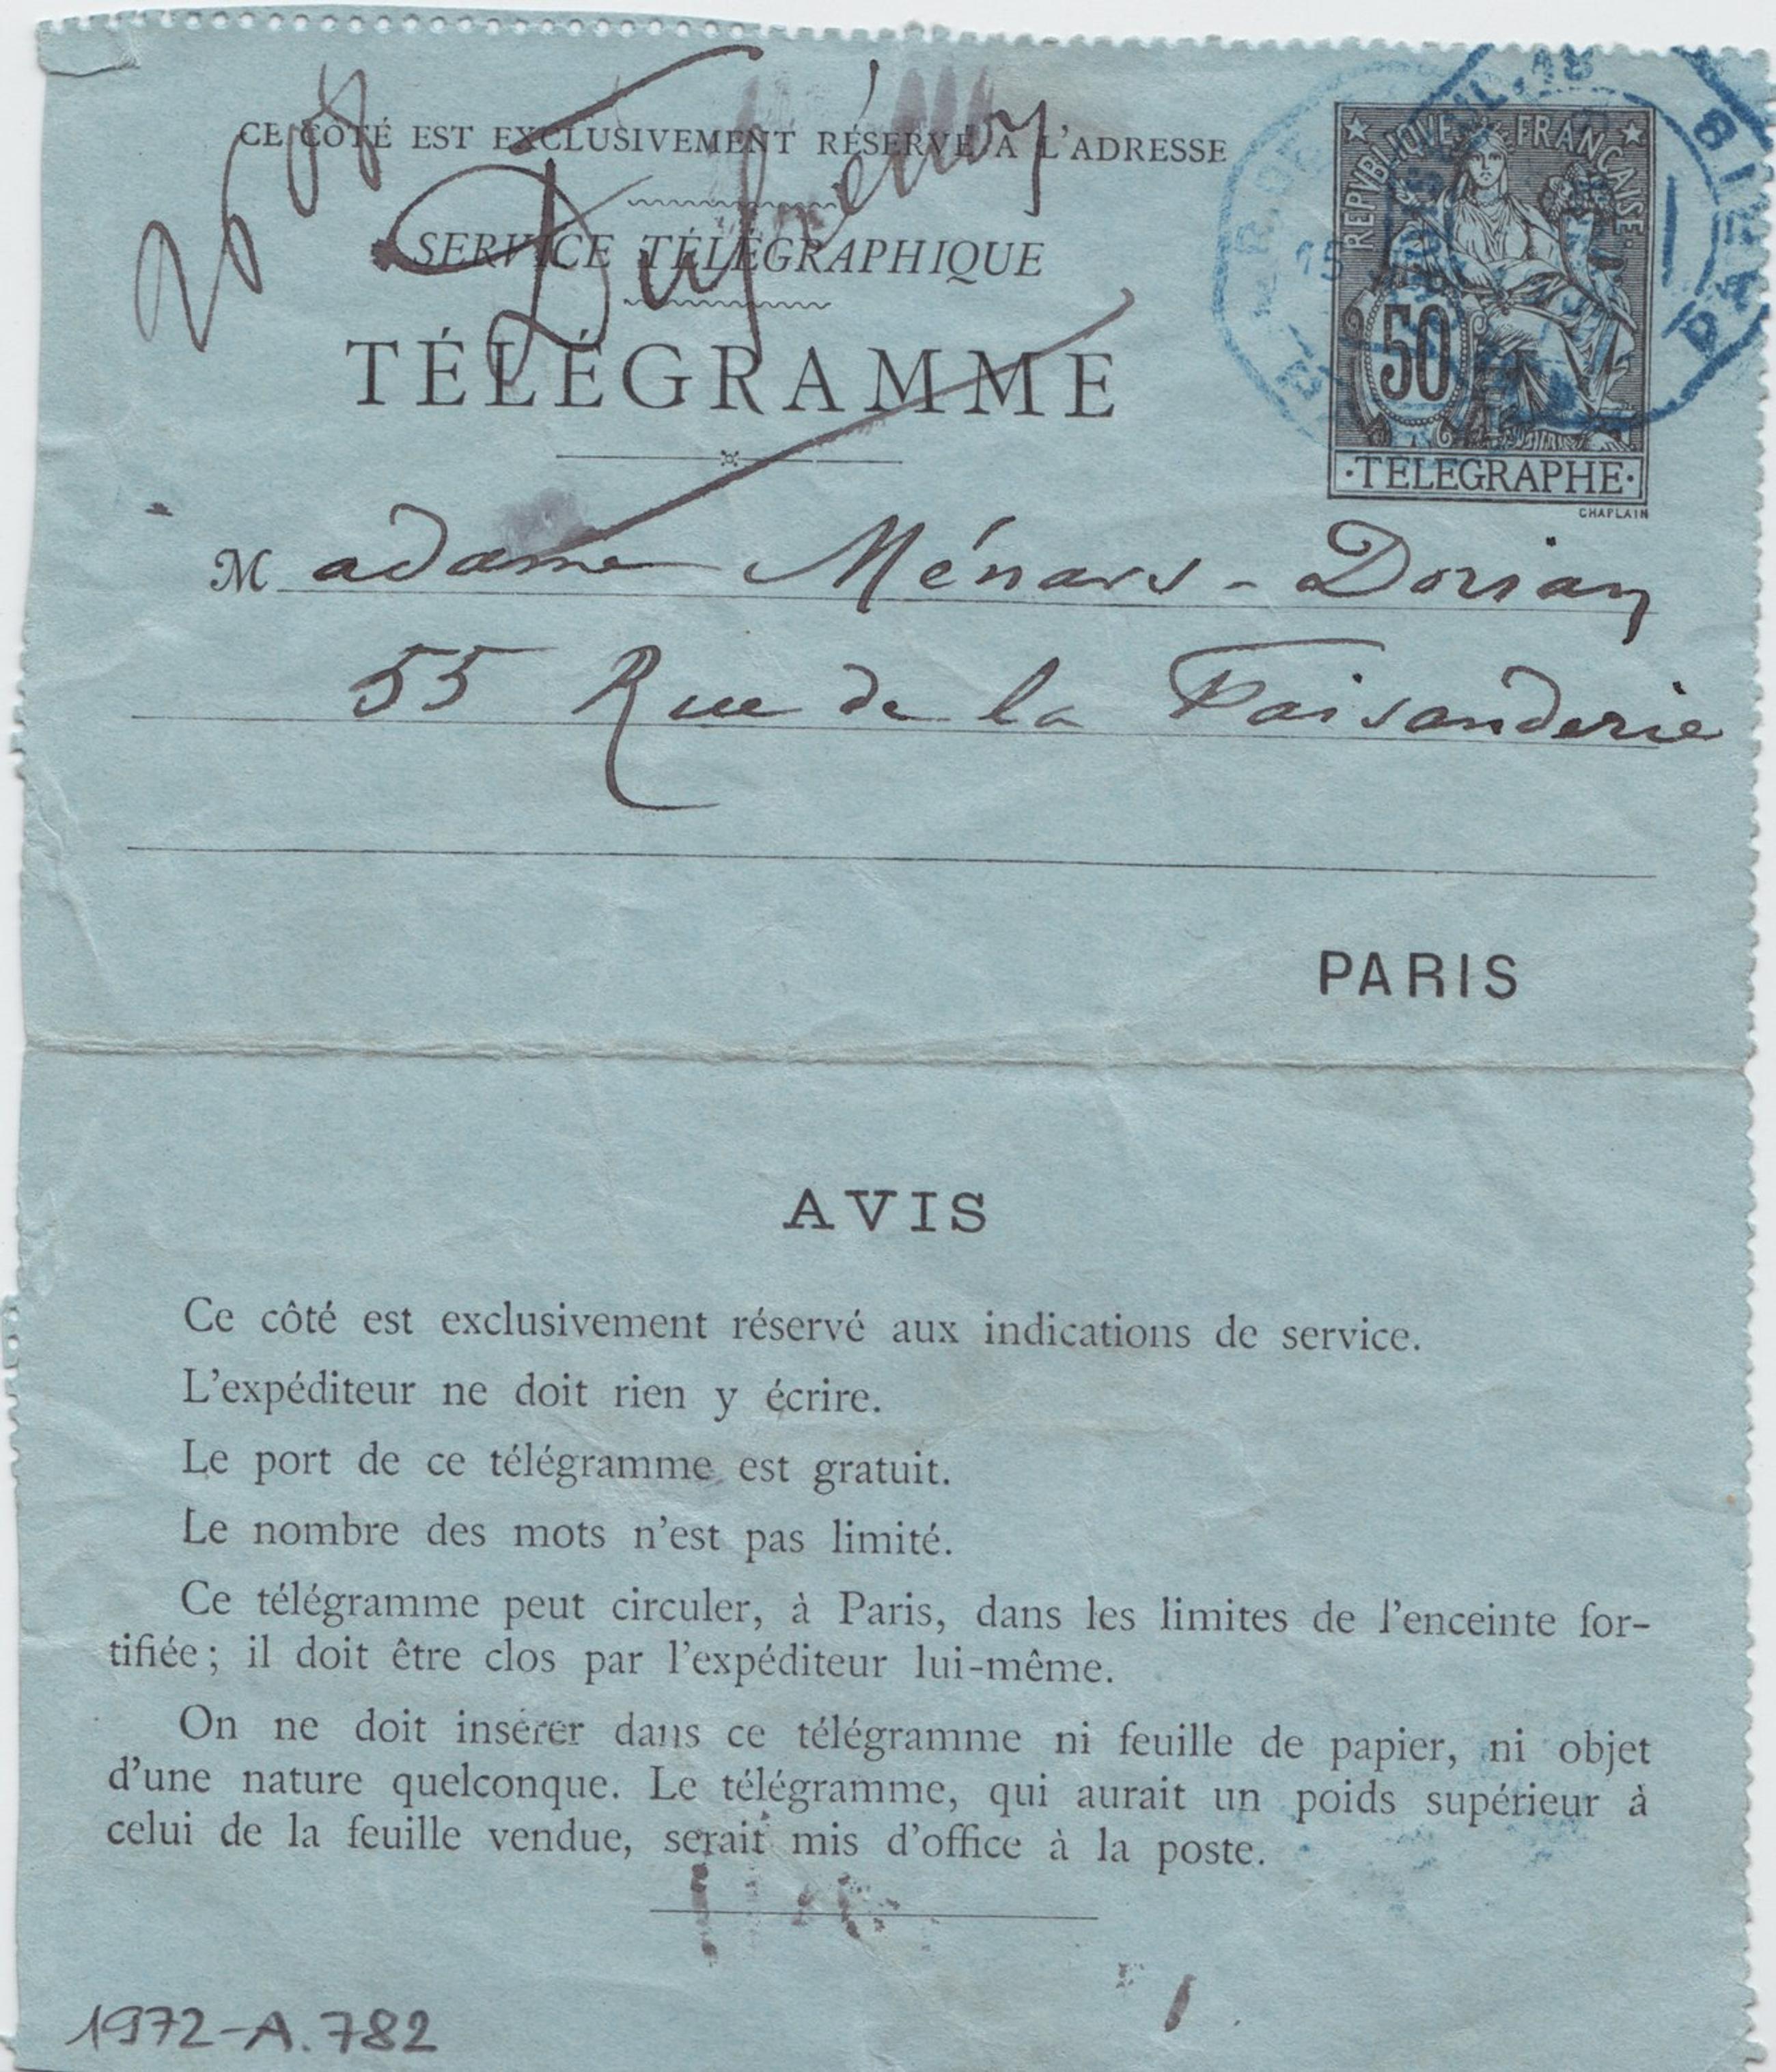 CE CÔTÉ EST EXCLUSIVEMENT RÉSERVÉ A L'ADRESSE
SERVICE TÉLÉGRAPHIQUE
TÉLÉGRAMME
REPVBLIQVE FRANÇAISE
50
·TELEGRAPHE·
CHAPLAIN
Madame Ménars-Dorian
55 Rue de la Faisanderie
PARIS
AVIS
Ce côté est exclusivement réservé aux indications de service.
L'expéditeur ne doit rien y écrire.
Le port de ce télégramme est gratuit.
Le nombre des mots n'est pas limité.
Ce télégramme peut circuler, à Paris, dans les limites de l'enceinte for-
tifiée; il doit être clos par l'expéditeur lui-même.
On ne doit insérer dans ce télégramme ni feuille de papier, ni objet
d'une nature quelconque. Le télégramme, qui aurait un poids supérieur à
celui de la feuille vendue, serait mis d'office à la poste.
1972-A.782